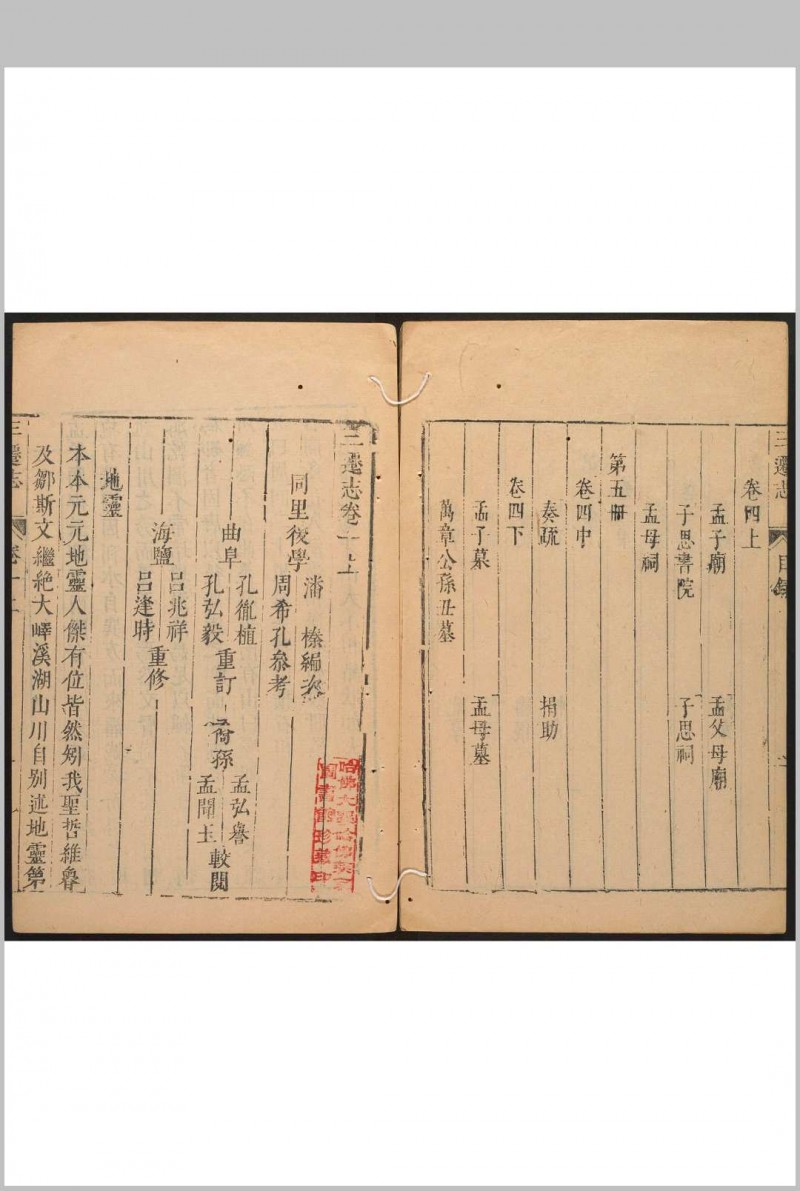 三遷志
目錄
卷四上
孟子廟 孟父母廟
子思書院 子思祠
孟母祠
第五冊
卷四中
奏疏 捐助
卷四下
孟子墓 孟母墓
萬章公孫丑墓
三遷志卷一上
同里後學 潘榛編次
周希孔參考
曲阜 孔胤植
孔弘毅 重訂 裔孫 孟弘譽
孟聞玉 較閱
海鹽 呂兆祥
呂逢時 重修
地靈
本本元元地靈人傑有位皆然矧我聖哲維魯
及鄒斯文繼絕大嶧溪湖山川自别述地靈第
三遷志
卷一上